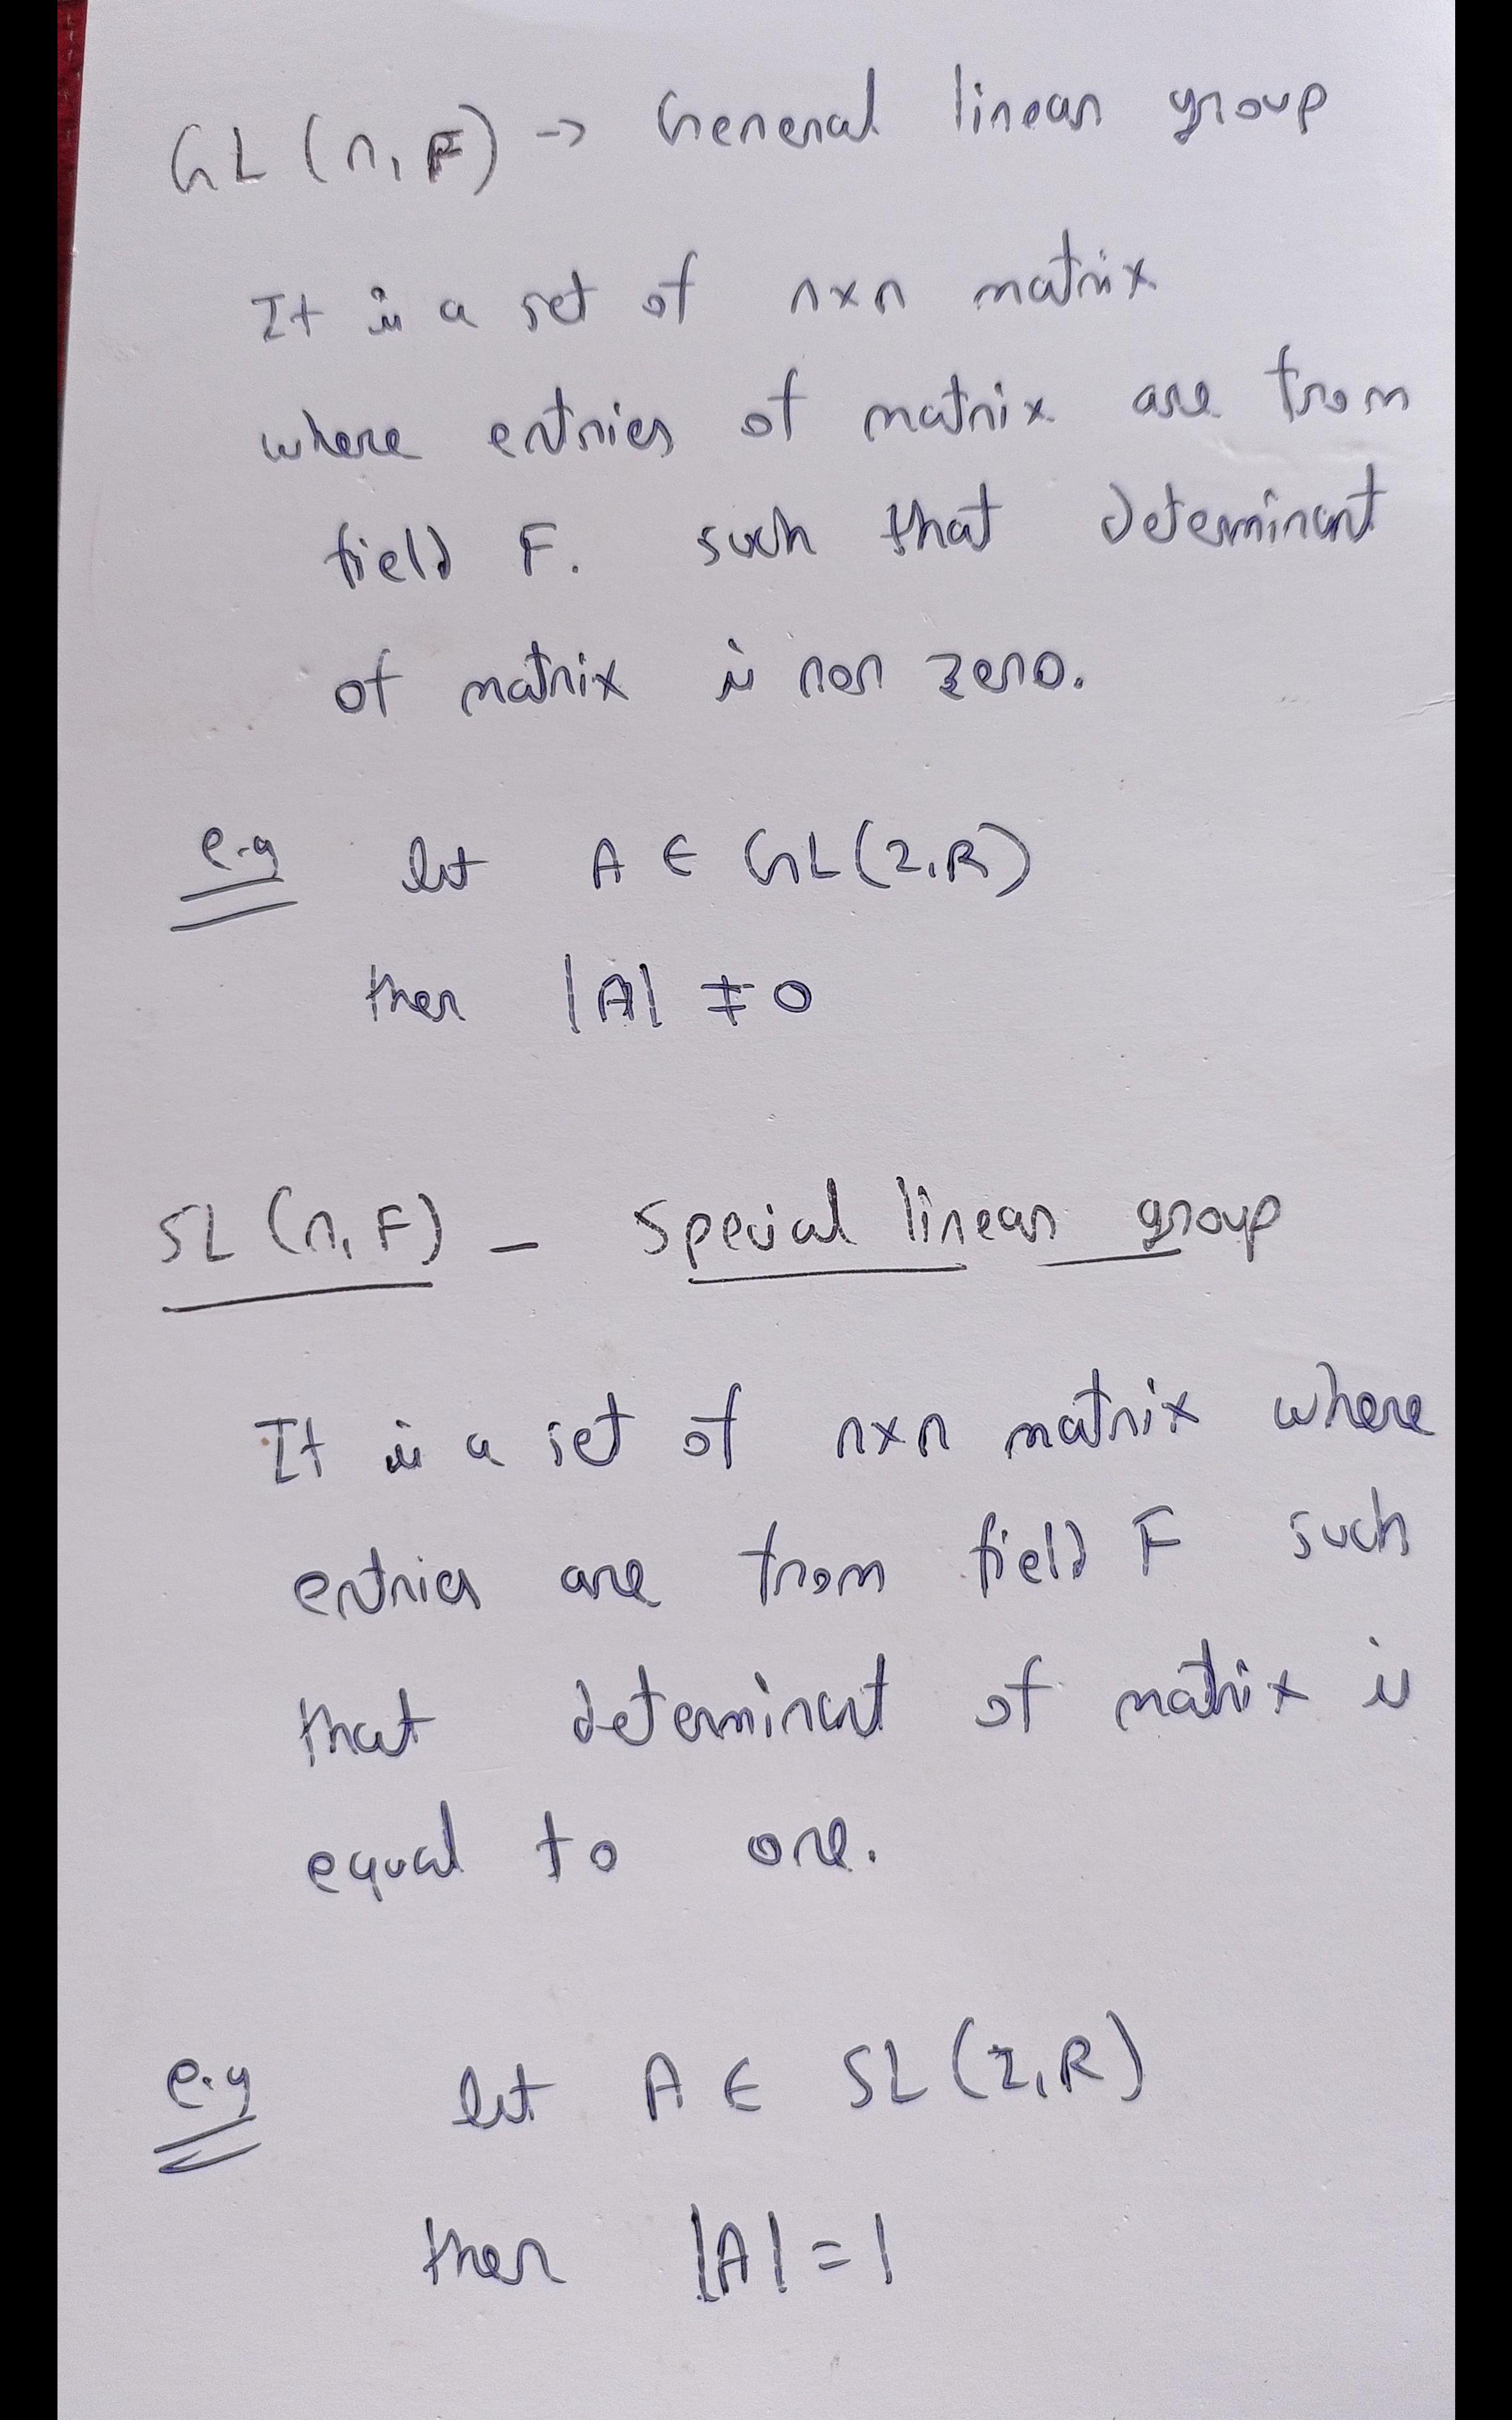 GL (n, F) → General linear group
It is a set of n×n matrix
where entries of matrix are from
field F. such that determinant
of matrix is non zero.
e.g let A ∈ GL(2,R)
then |A| ≠ 0
SL (n, F) - Special linear group
It is a set of n×n matrix where
entries are from field F such
that determinant of matrix is
equal to one.
e.g let A ∈ SL (2, R)
then |A| = 1